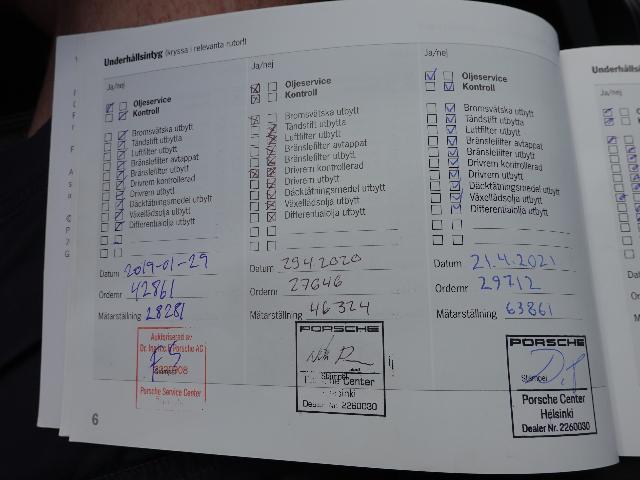 Underhållsintyg (kryssa i relevanta rutor!)
Ja/nej
Oljeservice
Kontroll
Bromsvätska utbytt
Tändstift utbytta
Luftfilter utbytt
Bränslefilter avtappat
Bränslefilter utbytt
Drivrem kontrollerad
Drivrem utbytt
Däcktätningsmedel utbytt
Växellådsolja utbytt
Differentialolja utbytt
Datum 2019-01-29
Ordernr 42861
Mätarställning 28281
Auktoriserad av
Dr. Ing. h.c. F. Porsche AG
Stämpel
Porsche Service Center
6
Ja/nej
Oljeservice
Kontroll
Bromsvätska utbytt
Tändstift utbytta
Luftfilter utbytt
Bränslefilter avtappat
Bränslefilter utbytt
Drivrem kontrollerad
Drivrem utbytt
Däcktätningsmedel utbytt
Växellådsolja utbytt
Differentialolja utbytt
Datum 29.4.2020
Ordernr 27646
Mätarställning 46324
PORSCHE
Stämpel
Porsche Center
Helsinki
Dealer Nr. 2260030
Ja/nej
Oljeservice
Kontroll
Bromsvätska utbytt
Tändstift utbytta
Luftfilter utbytt
Bränslefilter avtappat
Bränslefilter utbytt
Drivrem kontrollerad
Drivrem utbytt
Däcktätningsmedel utbytt
Växellådsolja utbytt
Differentialolja utbytt
Datum 21.4.2021
Ordernr 29712
Mätarställning 63861
PORSCHE
Stämpel
Porsche Center
Helsinki
Dealer Nr. 2260030
Ja/nej
Datum
Ordernr